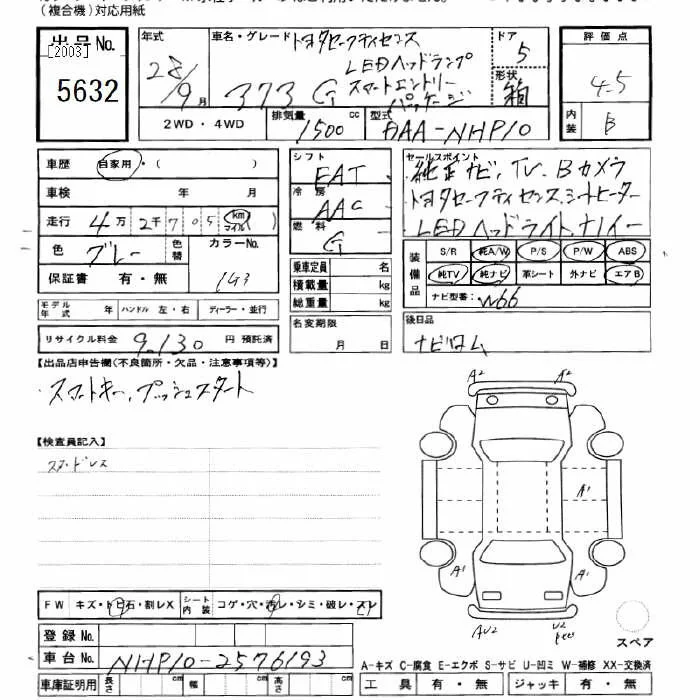 (複合機)対応用紙
出品No.
[2003]
5632
年式
28/9月
車名・グレード トヨタセーフティセンス
LEDヘッドランプ
スマートエントリー
373 G パッケージ
ドア 5
形状 箱
評価点
4.5
内装 B
2WD・4WD
排気量 1500 cc
型式 DAA-NHP10
車歴 自家用・( )
車検 年 月
走行 4万2千705 km マイル( )
色 グレー 色替
カラーNo. 1G3
保証書 有・無
シフト FAT
冷房 AAC
燃料 G
乗車定員 名
積載量 kg
総重量 kg
セールスポイント
純正ナビ,TV,Bカメラ
トヨタセーフティセンス,シートヒーター
LEDヘッドライト,ナノイー
装備品
S/R 純A/W P/S P/W ABS
純TV 純ナビ 革シート 外ナビ エアB
ナビ型番: W66
モデル年式 ハンドル 左・右 ディーラー・並行
リサイクル料金 9,130 円 預託済
名変期限 月 日
後日品
ナビロム
【出品店申告欄(不良箇所・欠品・注意事項等)】
・スマートキー,プッシュスタート
【検査員記入】
A2 A2
A1
A1 A1
AU2 U2
FW キズ・トビ石・割レX
シート内装 コゲ・穴・汚レ・シミ・破レ・スレ
登録No.
車台No. NHP10-2576193
車庫証明用 長さ cm 幅 cm 高さ cm
スペア
A-キズ C-腐食 E-エクボ S-サビ U-凹ミ W-補修 XX-交換済
工具 有・無 ジャッキ 有・無